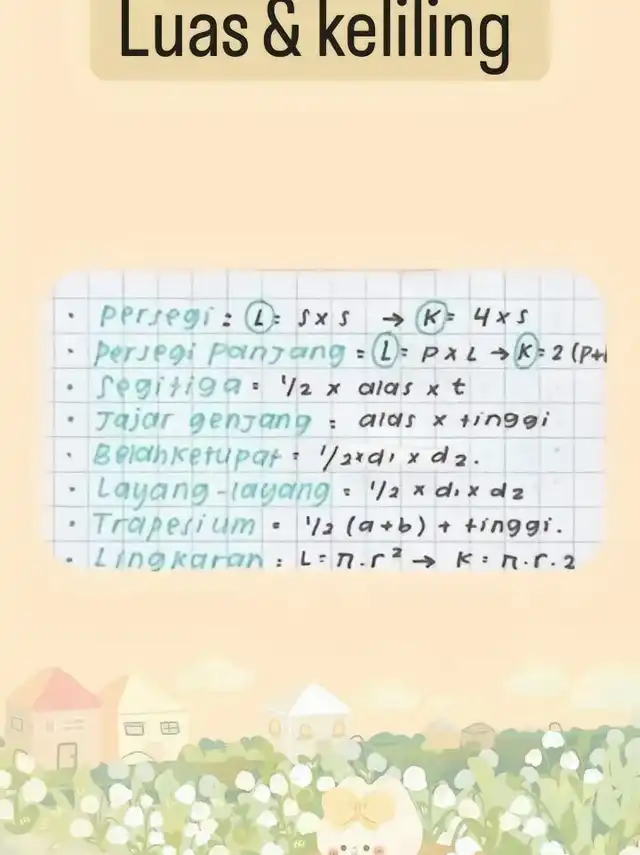 Luas & keliling
• Persegi : L = s x s → K = 4 x s
• Persegi Panjang = L = P x L → K = 2 (P+l
• Segitiga = 1/2 x alas x t
• Jajar genjang : alas x tinggi
• Belahketupat : 1/2 x d1 x d2.
• Layang-layang = 1/2 x d1 x d2
• Trapesium = 1/2 (a+b) + tinggi.
• Lingkaran : L = π.r² → K = π.r.2